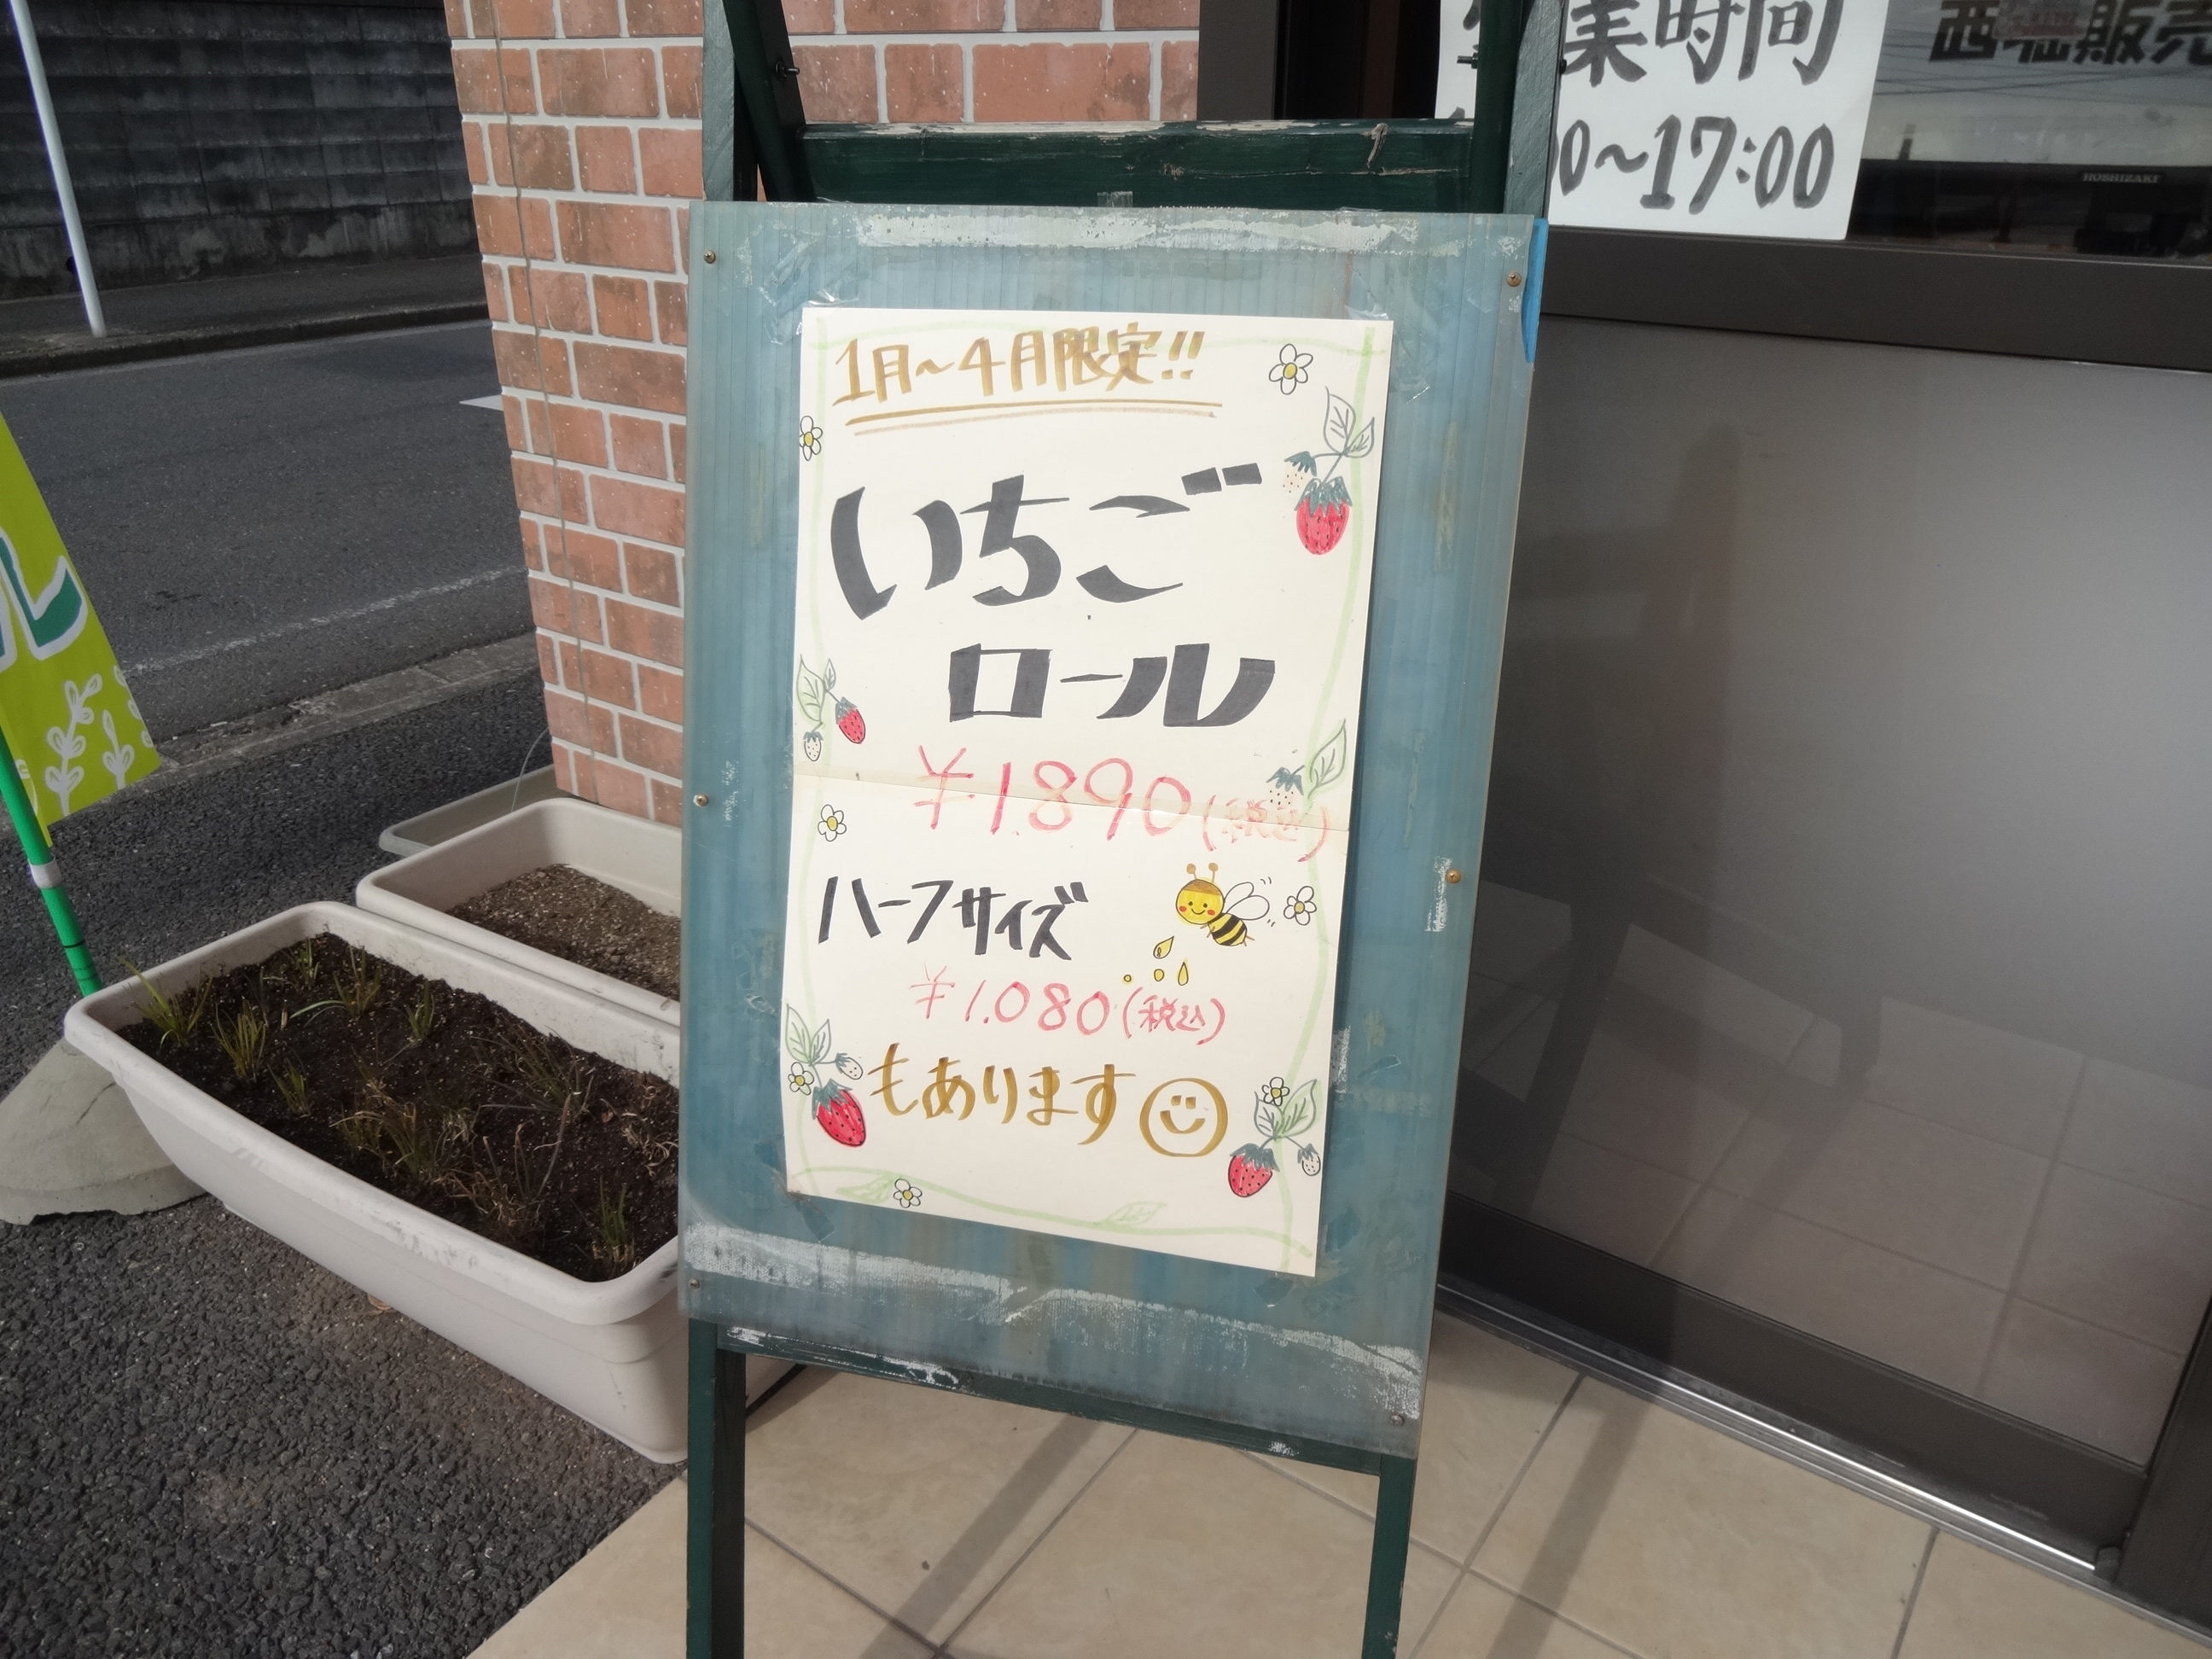 業時間
00~17:00
販売
HOSHIZAKI
1月~4月限定!!
いちご
ロール
¥1.890(税込)
ハーフサイズ
¥1.080(税込)
もあります
ル